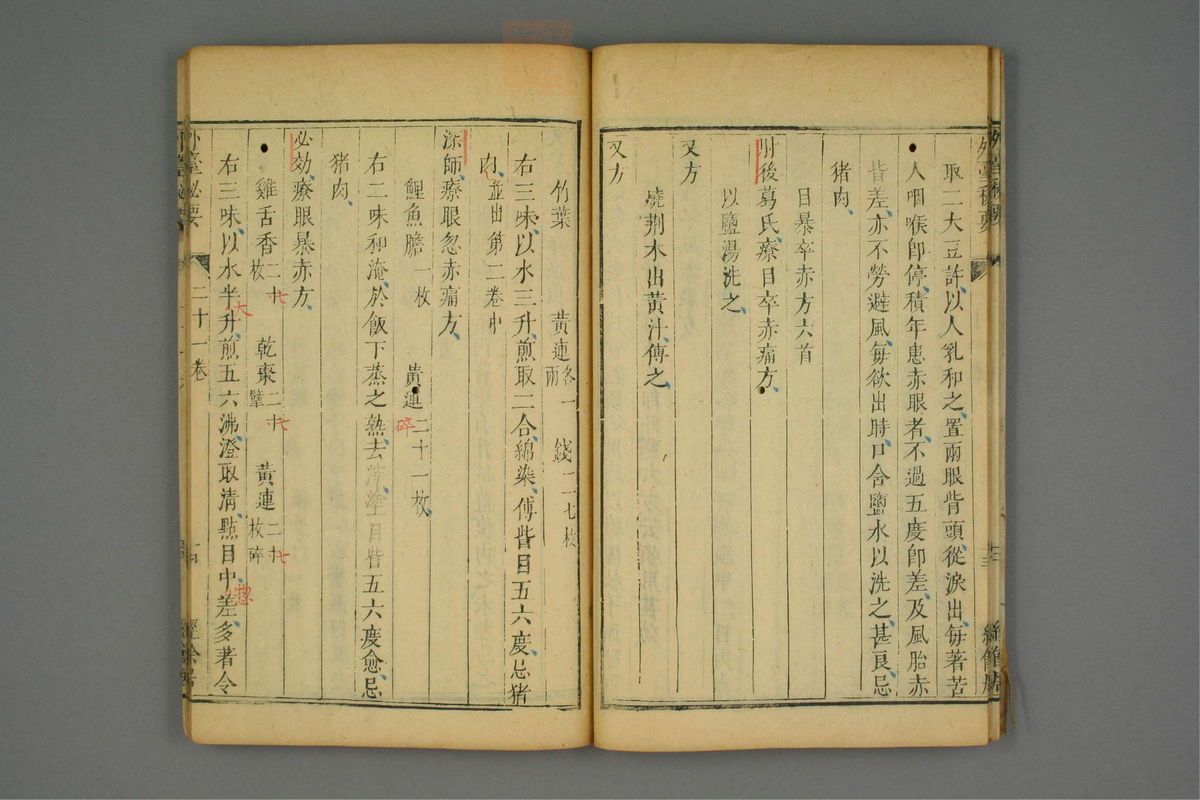 取二大豆許以人乳和之置兩眼眥頭從淚出每著苦
人咽喉卽停積年患赤眼者不過五度卽差及風胎赤
眥差亦不勞避風每欲出時口含鹽水以洗之甚良忌
猪肉
目暴卒赤方六首
肘後葛氏療目卒赤痛方
以鹽湯洗之
又方
燒荆木出黃汁傅之
又方
竹葉 黃連各一兩 錢二七枚
右三味以水三升煎取二合綿染傅眥目五六度忌猪
肉並出第二卷中
深師療眼忽赤痛方
鯉魚膽一枚 黃連二十一枚
碎
右二味和淹於飯下蒸之熟去滓塗目眥五六度愈忌
猪肉
必効療眼暴赤方
雞舌香二十枚 乾棗二十擘 黃連二十枚碎
七
七
七
右三味以水半升煎五六沸澄取清點目中差多著令
大
惣
外臺秘要
二十一卷